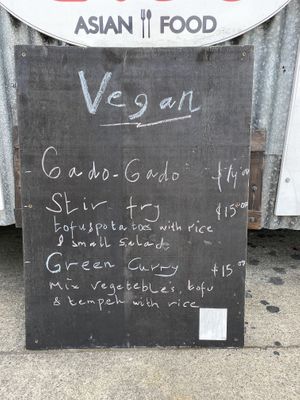 ASIAN FOOD
Vegan
Gado-Gado $14.00
Stir fry $15.00
tofu & potatoes with rice
& small salads
Green Curry $15.00
Mix vegetebles, tofu
& tempeh with rice